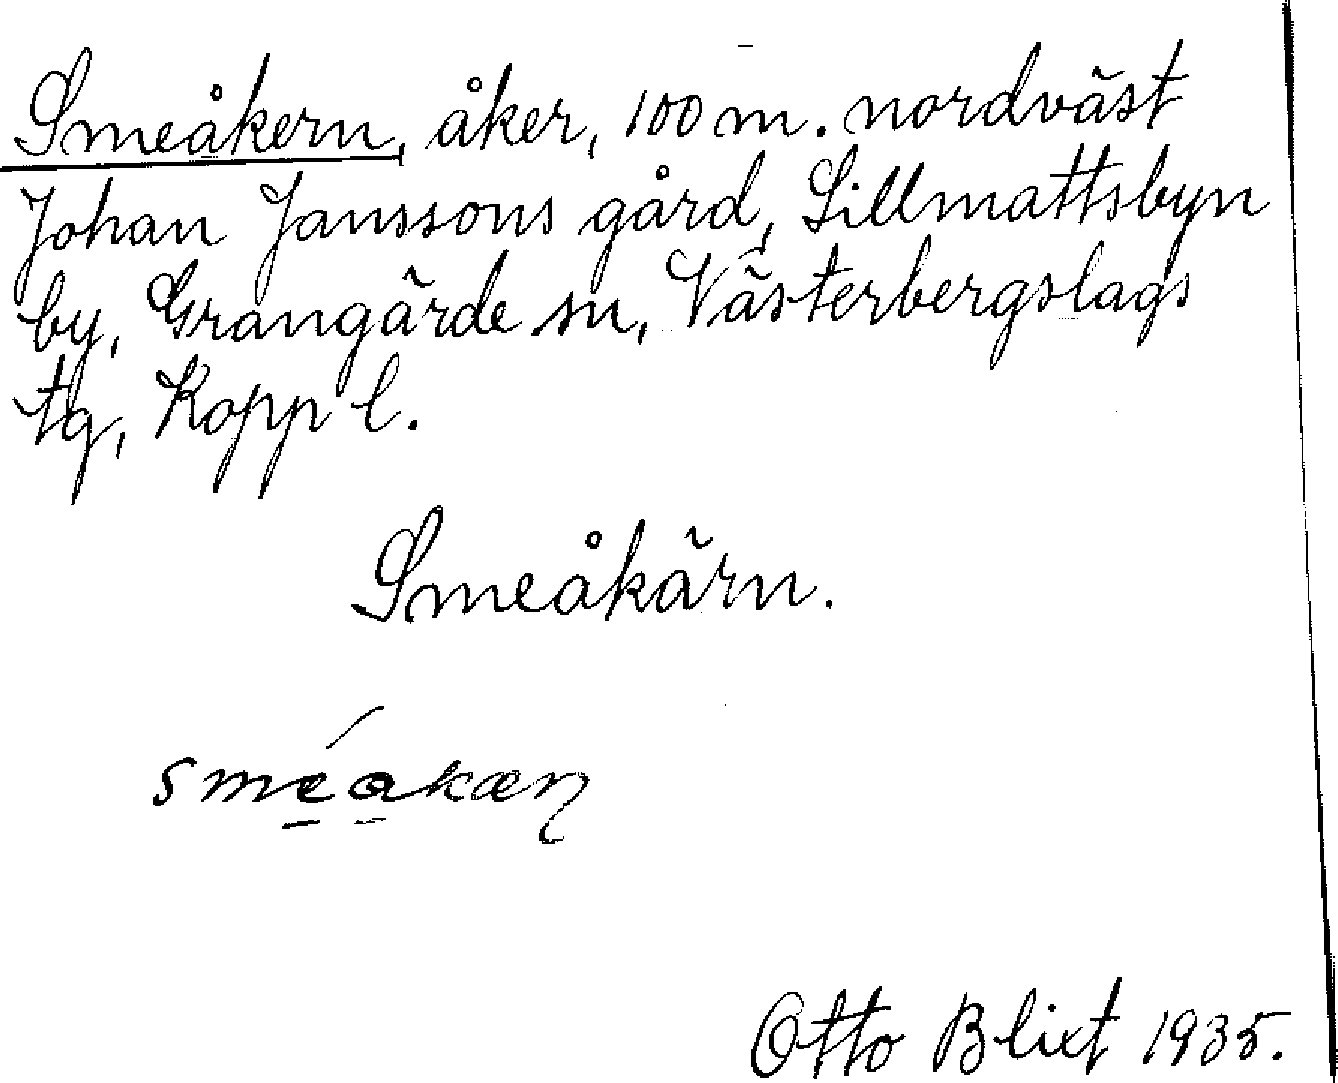 Smeåkern, åker, 100 m. nordväst
Johan Janssons gård, Lillmattsbyn
by, Grangärde sn, Västerbergslags
tg, Kopp l.
Smeåkärn.
sméakæn
Otto Blixt 1935.